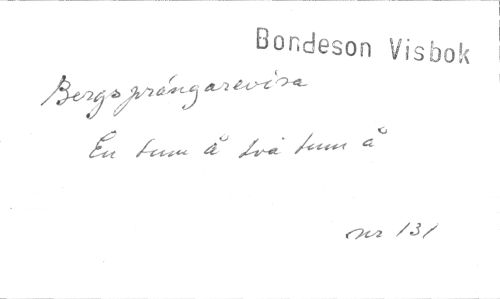 Bondeson Visbok
Bergsprångarevisa
En tum å två tum å
nr 131